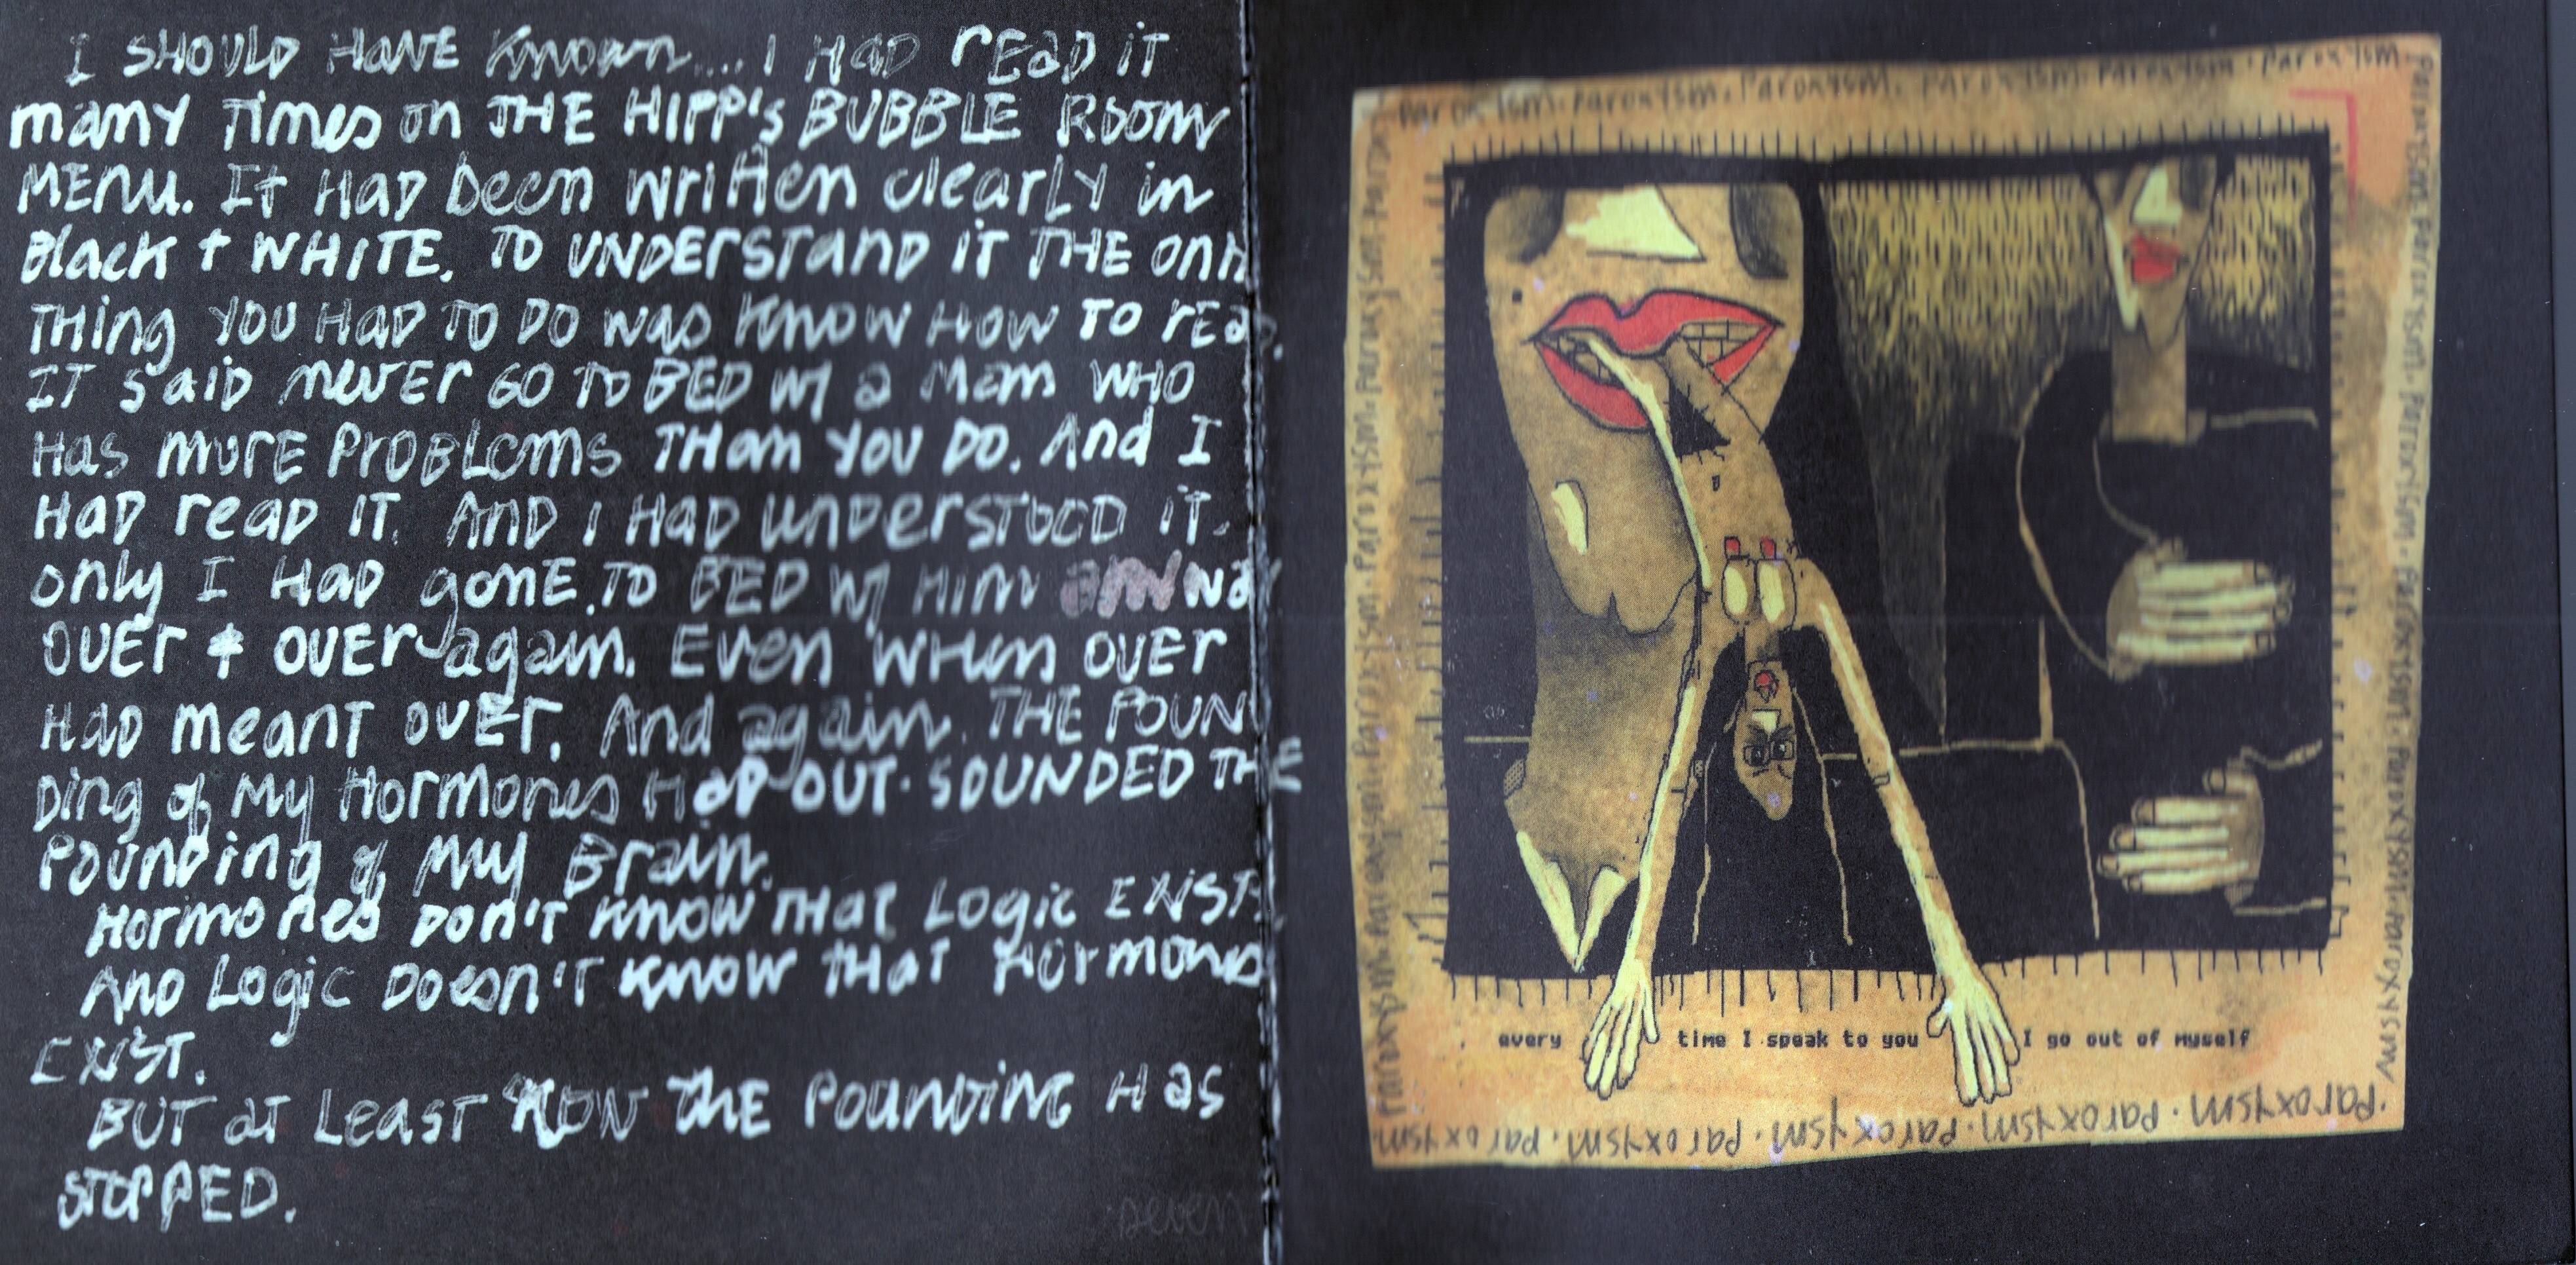 I SHOULD HAVE Known.... I HAD rEaD iT
many Times on THE HIPP's BUBBLE ROOM
MEnu. It HaD been written clearly in
Black + WHITE. TO UNDErSTanD iT THE
THing YOU HaD TO DO was Know HOW TO rEaD.
IT saiD never GO TO BED W/ a Man WHO
Has morE ProBLems THan YOU DO. And I
HaD reaD IT. AnD I HaD UnDerSTOOD iT.
only I HaD gonE TO BED W/ Him anyway
OVEr & OVEr again. Even WHen OVEr
HaD meanT OVEr. And again. THE POUN
Ding of My Hormones HaD OUT-SOUNDED THE
POunDing of My Brain.
Hormones Don'T Know THaT Logic EXisTs.
AnD Logic Doesn'T Know THaT Hormones
EXisT.
BUT aT LeasT NOW THE POunDing Has
STOPPED.
seven
Paroxysm. Paroxysm. Paroxysm. Paroxysm. Paroxysm. Paroxysm.
every time I speak to you I go out of myself
Paroxysm. Paroxysm. Paroxysm. Paroxysm. Paroxysm. Paroxysm.